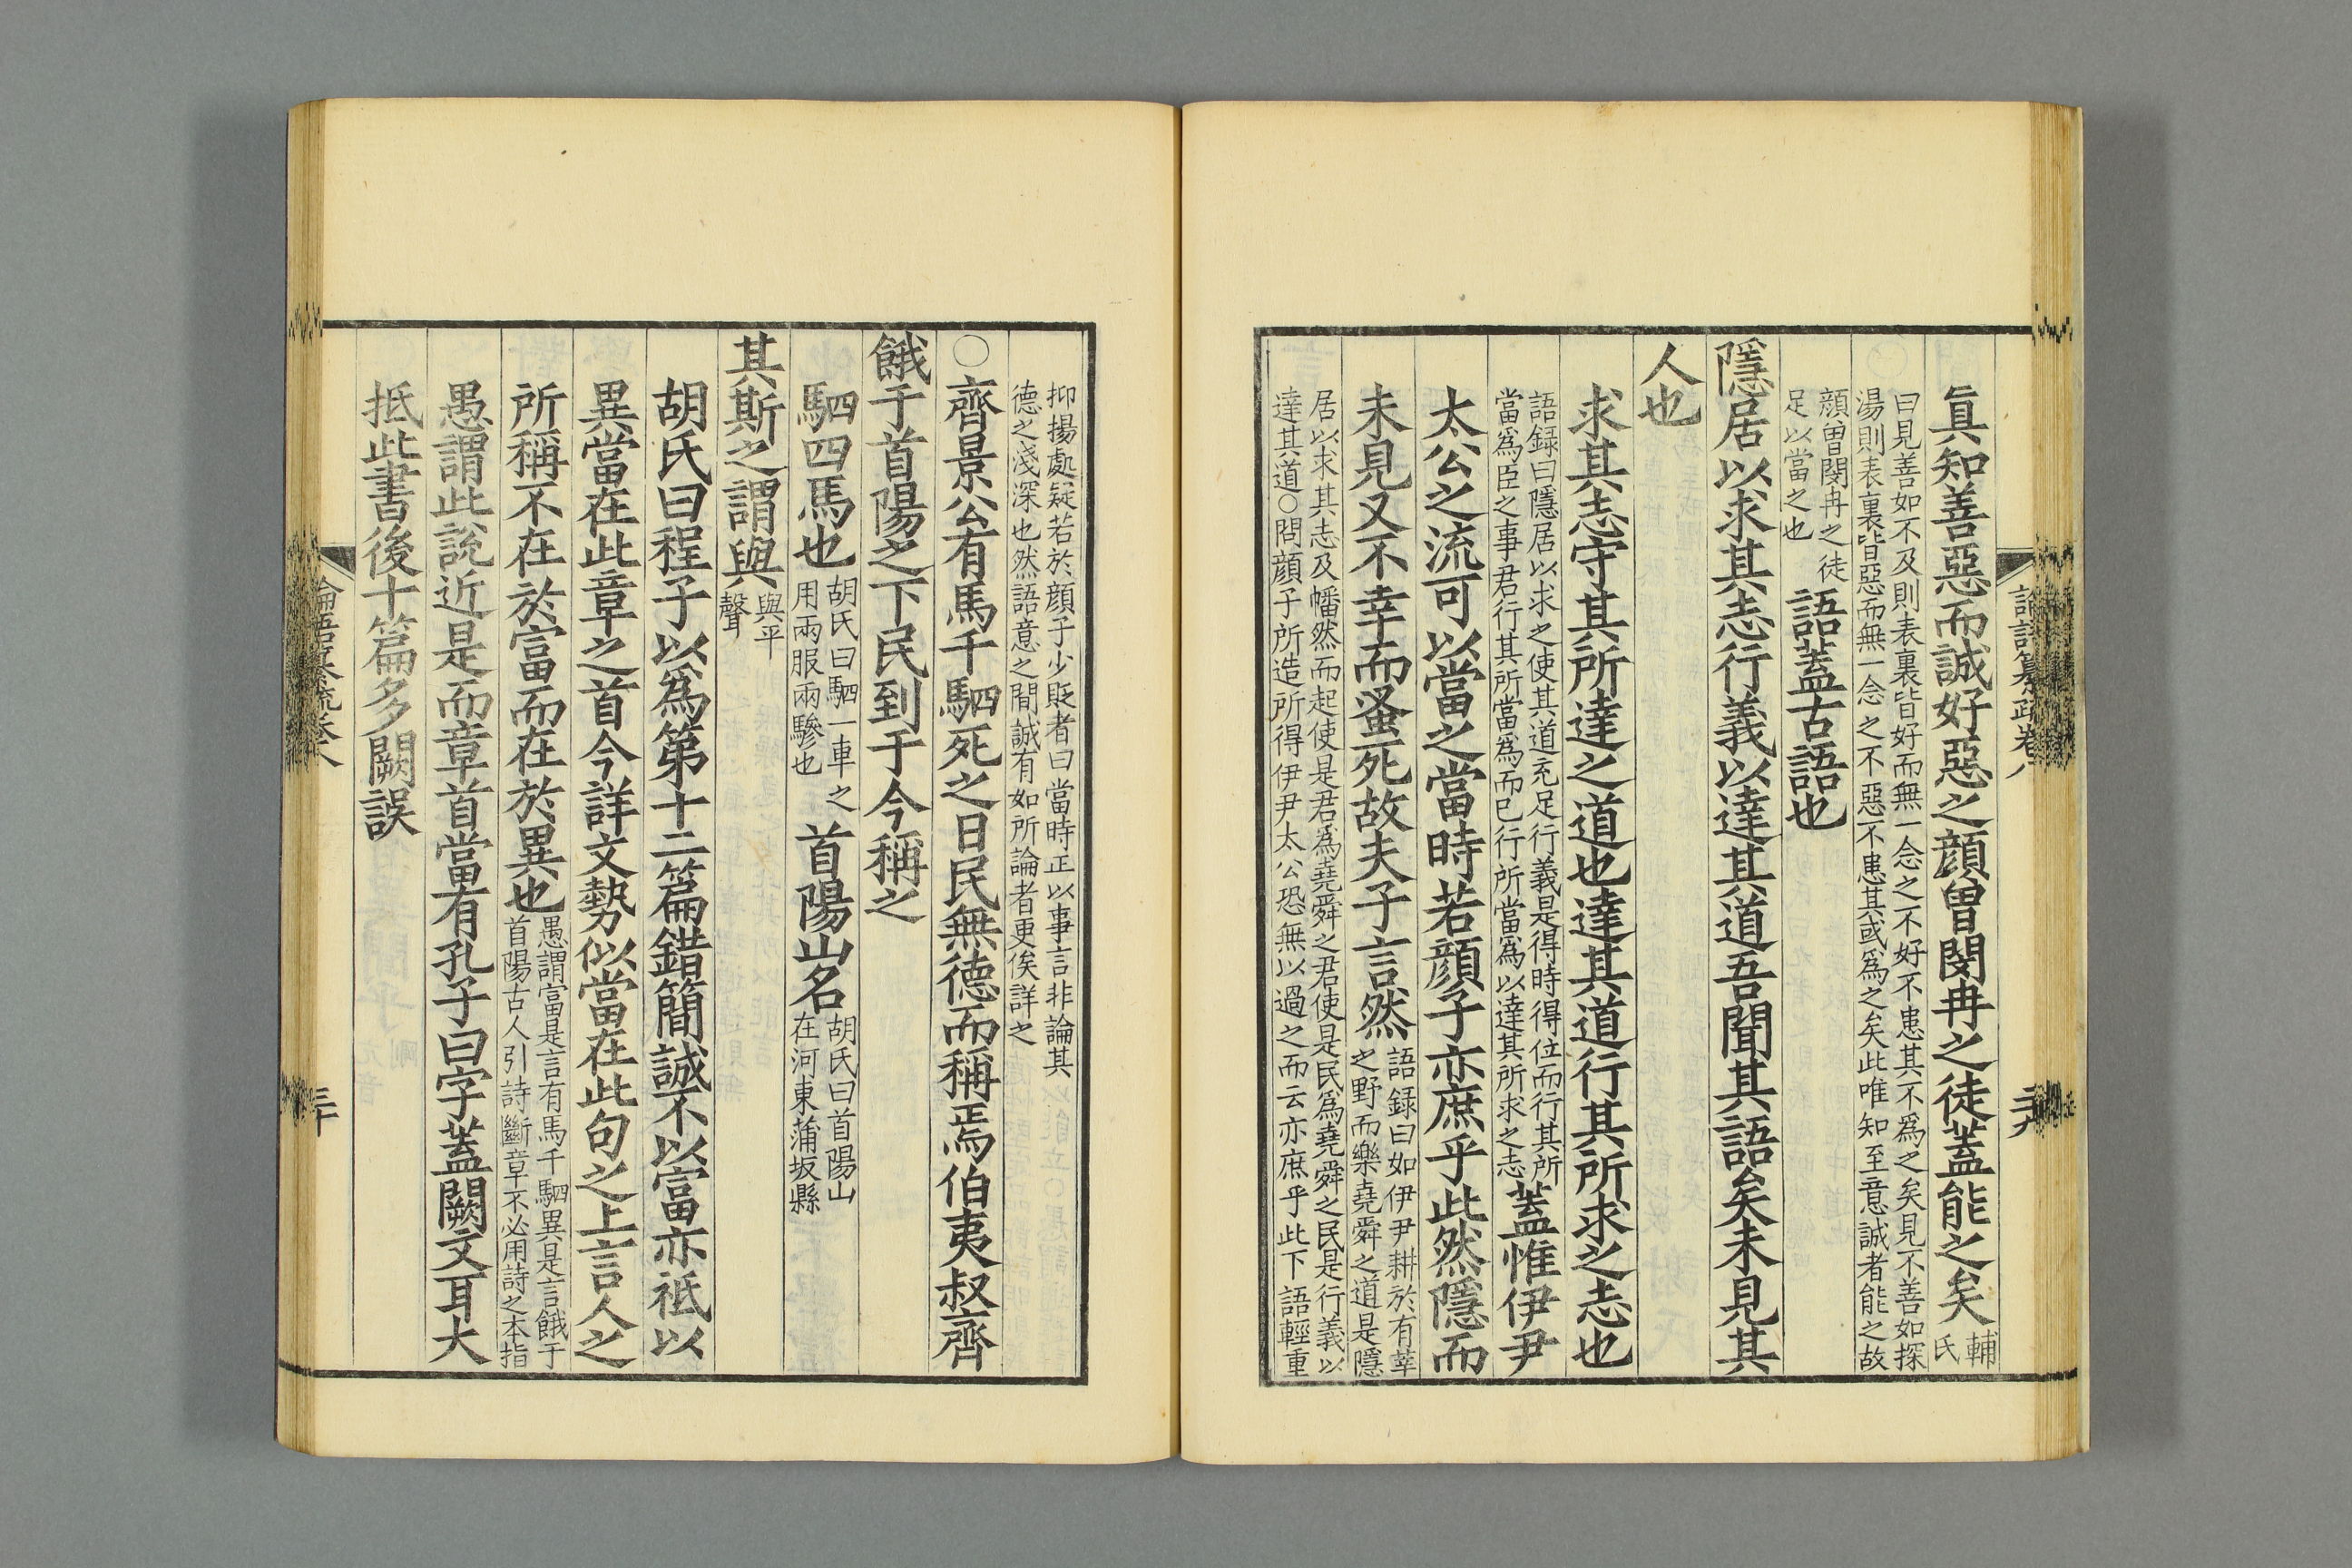 眞知善惡而誠好惡之顔曾閔冉之徒蓋能之矣輔氏
曰見善如不及則表裏皆好而無一念之不好不患其不爲之矣見不善如探
湯則表裏皆惡而無一念之不惡不患其或爲之矣此唯知至意誠者能之故
顔曾閔冉之徒
足以當之也
語蓋古語也
隱居以求其志行義以達其道吾聞其語矣未見其
人也
求其志守其所達之道也達其道行其所求之志也
語録曰隱居以求之使其道充足行義是得時得位而行其所
當爲臣之事君行其所當爲而已行所當爲以達其所求之志
蓋惟伊尹
太公之流可以當之當時若顔子亦庶乎此然隱而
未見又不幸而蚤死故夫子言然
語録曰如伊尹耕於有莘
之野而樂堯舜之道是隱
居以求其志及幡然而起使是君爲堯舜之君使是民爲堯舜之民是行義以
達其道○問顔子所造所得伊尹太公恐無以過之而云亦庶乎此下語輕重
抑揚處疑若於顔子少貶者曰當時正以事言非論其
德之淺深也然語意之間誠有如所論者更俟詳之
○齊景公有馬千駟死之日民無德而稱焉伯夷叔齊
餓于首陽之下民到于今稱之
駟四馬也
胡氏曰駟一車之
用兩服兩驂也
首陽山名
胡氏曰首陽山
在河東蒲坂縣
其斯之謂與
與平
聲
胡氏曰程子以爲第十二篇錯簡誠不以富亦祗以
異當在此章之首今詳文勢似當在此句之上言人之
所稱不在於富而在於異也
愚謂富是言有馬千駟異是言餓于
首陽古人引詩斷章不必用詩之本指
愚謂此說近是而章首當有孔子曰字蓋闕文耳大
抵此書後十篇多闕誤
論語纂疏卷八
三十